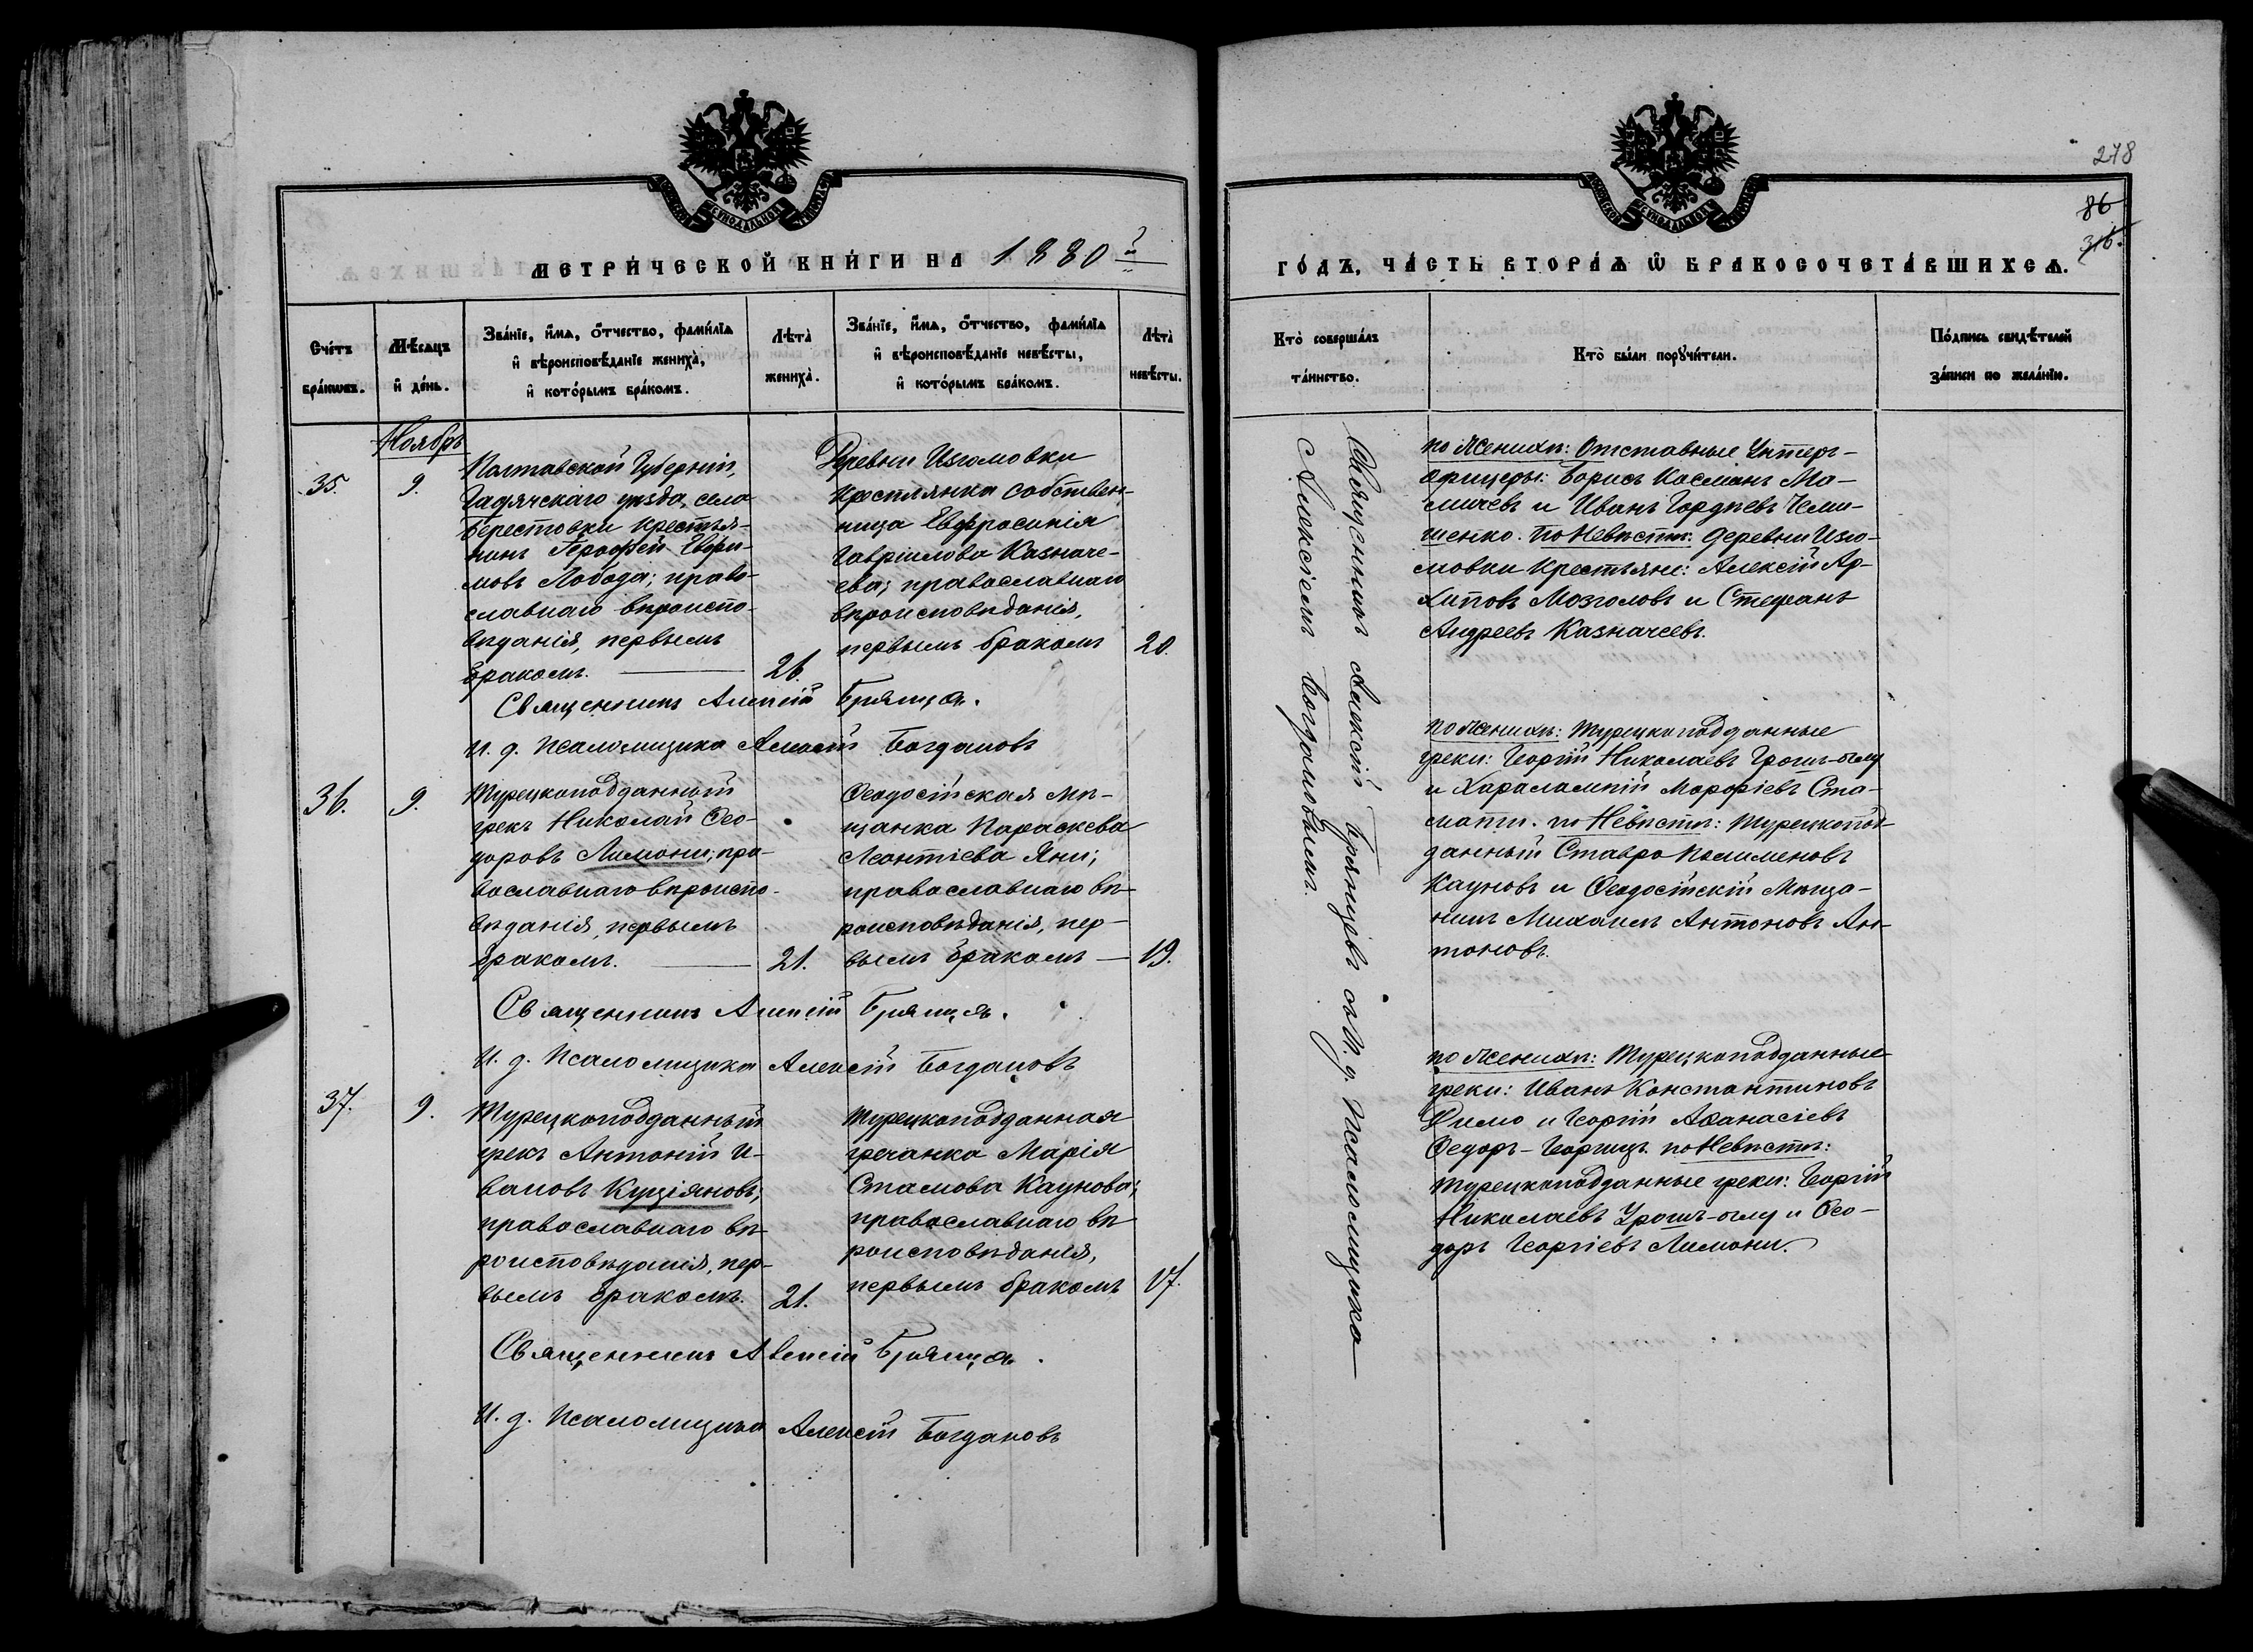 МЕТРИЧЕСКОЙ КНИГИ НА 1880й
Счетъ браковъ.
Мѣсяцъ и день.
Званіе, имя, отчество, фамилія
и вѣроисповѣданіе жениха,
и которымъ бракомъ.
Лѣта жениха.
Званіе, имя, отчество, фамилія
и вѣроисповѣданіе невѣсты,
и которымъ бракомъ.
Лѣта невѣсты.
Ноябрь
35.
9.
Полтавской Губерніи,
Гадячскаго уѣзда, села
Берестовки крестья-
нинъ
мовъ Лобода; право-
славнаго вѣроиспо-
вѣданія, первымъ
бракомъ.
26.
Деревни Изюмовки
крестьянка собствен-
ница Евфросинія
Гавріилова Казначе-
ева; православнаго
вѣроисповѣданія,
первымъ бракомъ
20.
Священникъ Алексій Брянцевъ.
И. д. Псаломщика Алексій Богдановъ
36.
9.
Турецкоподданный
грекъ Николай Ѳео-
доровъ Лимони; пра-
вославнаго вѣроиспо-
вѣданія, первымъ
бракомъ.
21.
Ѳеодосійская мѣ-
щанка Параскева
Леонтіева Яни;
православнаго вѣ-
роисповѣданія, пер-
вымъ бракомъ
19.
Священникъ Алексій Брянцевъ.
И. д. Псаломщика Алексій Богдановъ
37.
9.
Турецкоподданный
грекъ Антоній И-
вановъ Куціяновъ;
православнаго вѣ-
роисповѣданія, пер-
вымъ бракомъ.
21.
Турецкоподданная
гречанка Марія
Стамова Каунова;
православнаго вѣ-
роисповѣданія,
первымъ бракомъ
17.
Священникъ Алексій Брянцевъ.
И. д. Псаломщика Алексій Богдановъ
278
86
316.
ГОДЪ, ЧАСТЬ ВТОРАЯ Ѡ БРАКОСОЧЕТАВШИХСЯ.
Кто совершалъ
таинство.
Кто были поручители.
Подпись свидѣтелей
записи по желанію.
Священникъ Алексій Брянцевъ съ И. д. Псаломщика
Алексіемъ Богдановымъ.
по Женихѣ: Отставные Унтеръ-
офицеры: Борисъ Косминъ Ма-
мичевъ и Иванъ Гордѣевъ Чеми-
шенко. По Невѣстѣ: деревни Изю-
мовки крестьяне: Алексій Ар-
хиповъ Мозголовъ и Стефанъ
Андреевъ Казначеевъ.
по Женихѣ: Турецкоподданные
греки: Георгій Николаевъ
и Харалампій Ста-
мати. по Невѣстѣ: Турецкопод-
данный Ставро
Кауновъ и Ѳеодосійскій Мѣща-
нинъ Михаилъ Антоновъ Ан-
тоновъ.
по Женихѣ: Турецкоподданные
греки: Иванъ Константиновъ
Димо и Георгій Аѳанасіевъ
Ѳедоръ-Георгицъ. по Невѣстѣ:
Турецкоподданные греки: Георгій
Николаевъ и Ѳео-
доръ Георгіевъ Лимони.